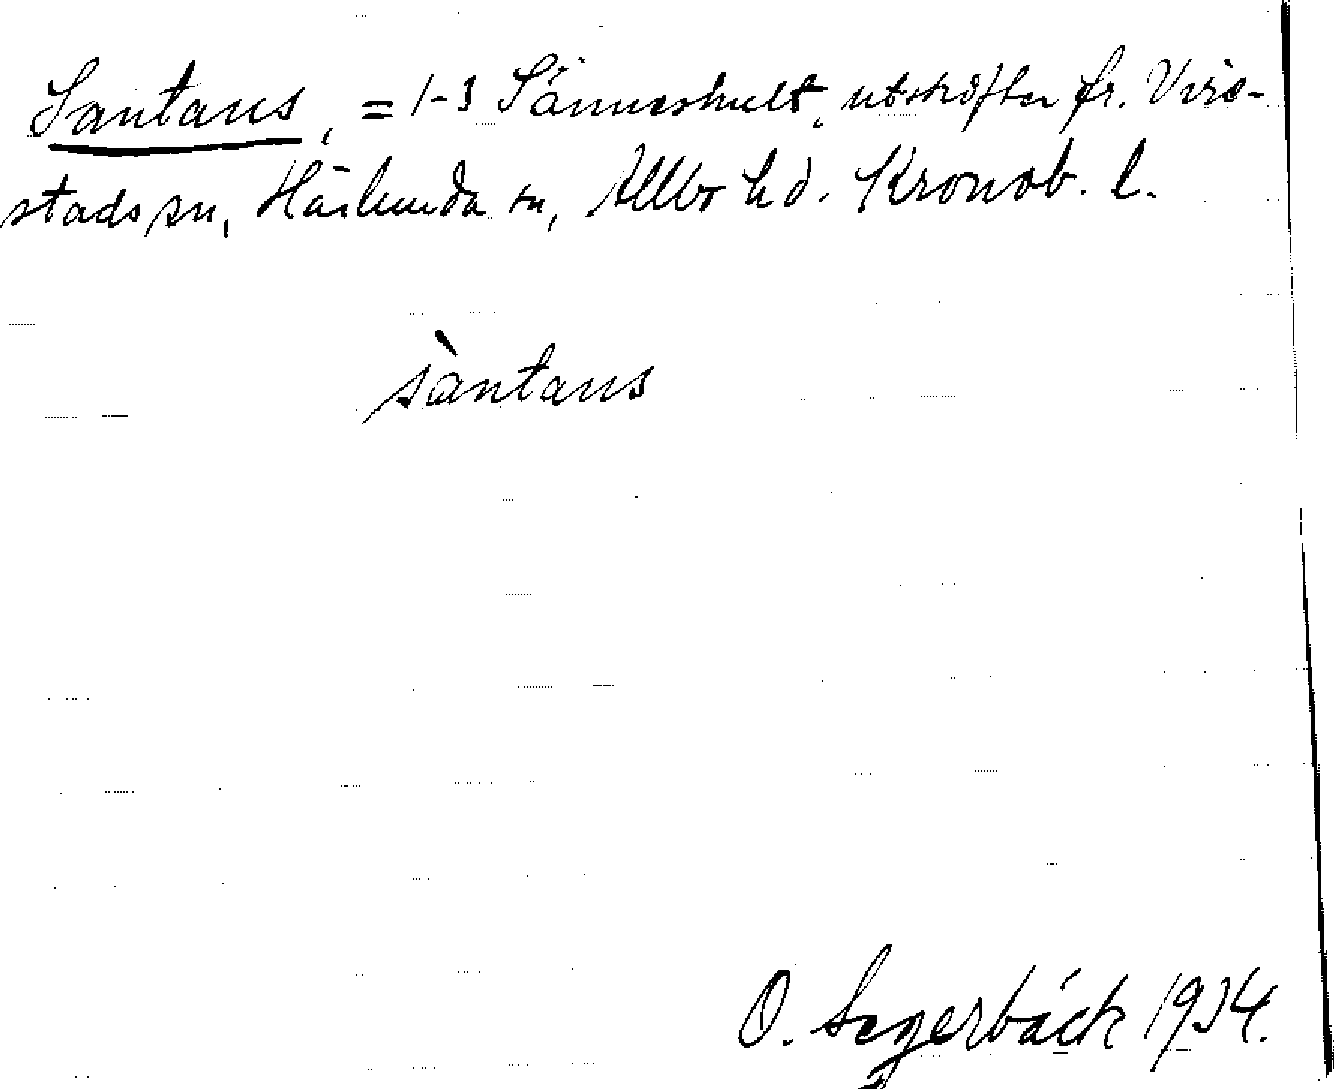 Santaus, = 1-3 Sänneshult, utskiften fr. Vire-
stads sn, Härlunda sn, Allbo hd. Kronob. l.
sàntaus
O. Segerbäck 1934.